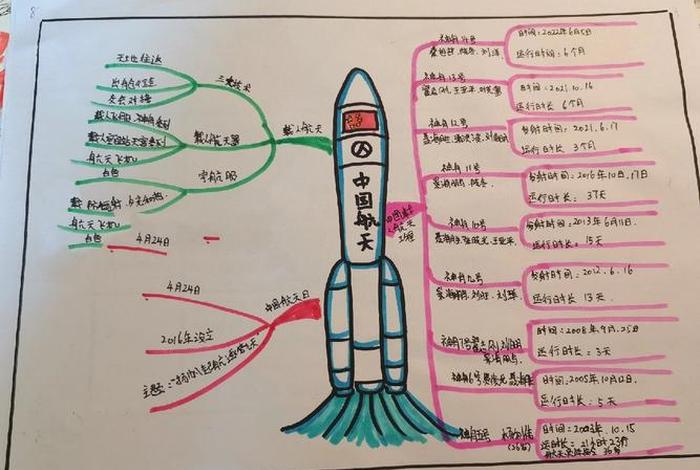 天地往返
出舱行走
交会对接
三大技术
载人飞船：神舟系列
载人空间站天宫系列
航天飞机
载人航天器
载人航天
白色
宇航服
航天飞机
白色
4月24日
4月24日
2016年设立
中国航天日
中国航天
中国载
人航天
工程
神舟14号
陈冬、刘洋
时间：2022年6月5日
运行时间：6个月
神舟13号
翟志刚、王亚平、叶光富
时间：2021.10.16
运行时长：6个月
神舟12号
发射时间：2021.6.17
运行时长：3个月
神舟11号
景海鹏、陈冬
发射时间：2016年10月17日
运行时长：37天
神舟10号
发射时间：2013年6月11日
运行时长：15天
神舟九号
景海鹏、刘旺、刘洋
发射时间：2012.6.16
运行时长：13天
神舟7号翟志刚、刘伯明
景海鹏
时间：2008年9月25日
运行时长：3天
神舟6号费俊龙、聂海胜
时间：2005年10月12日
运行时长：5天
神舟五号 杨利伟
时间：2003年.10.15
运行时长：21小时23分